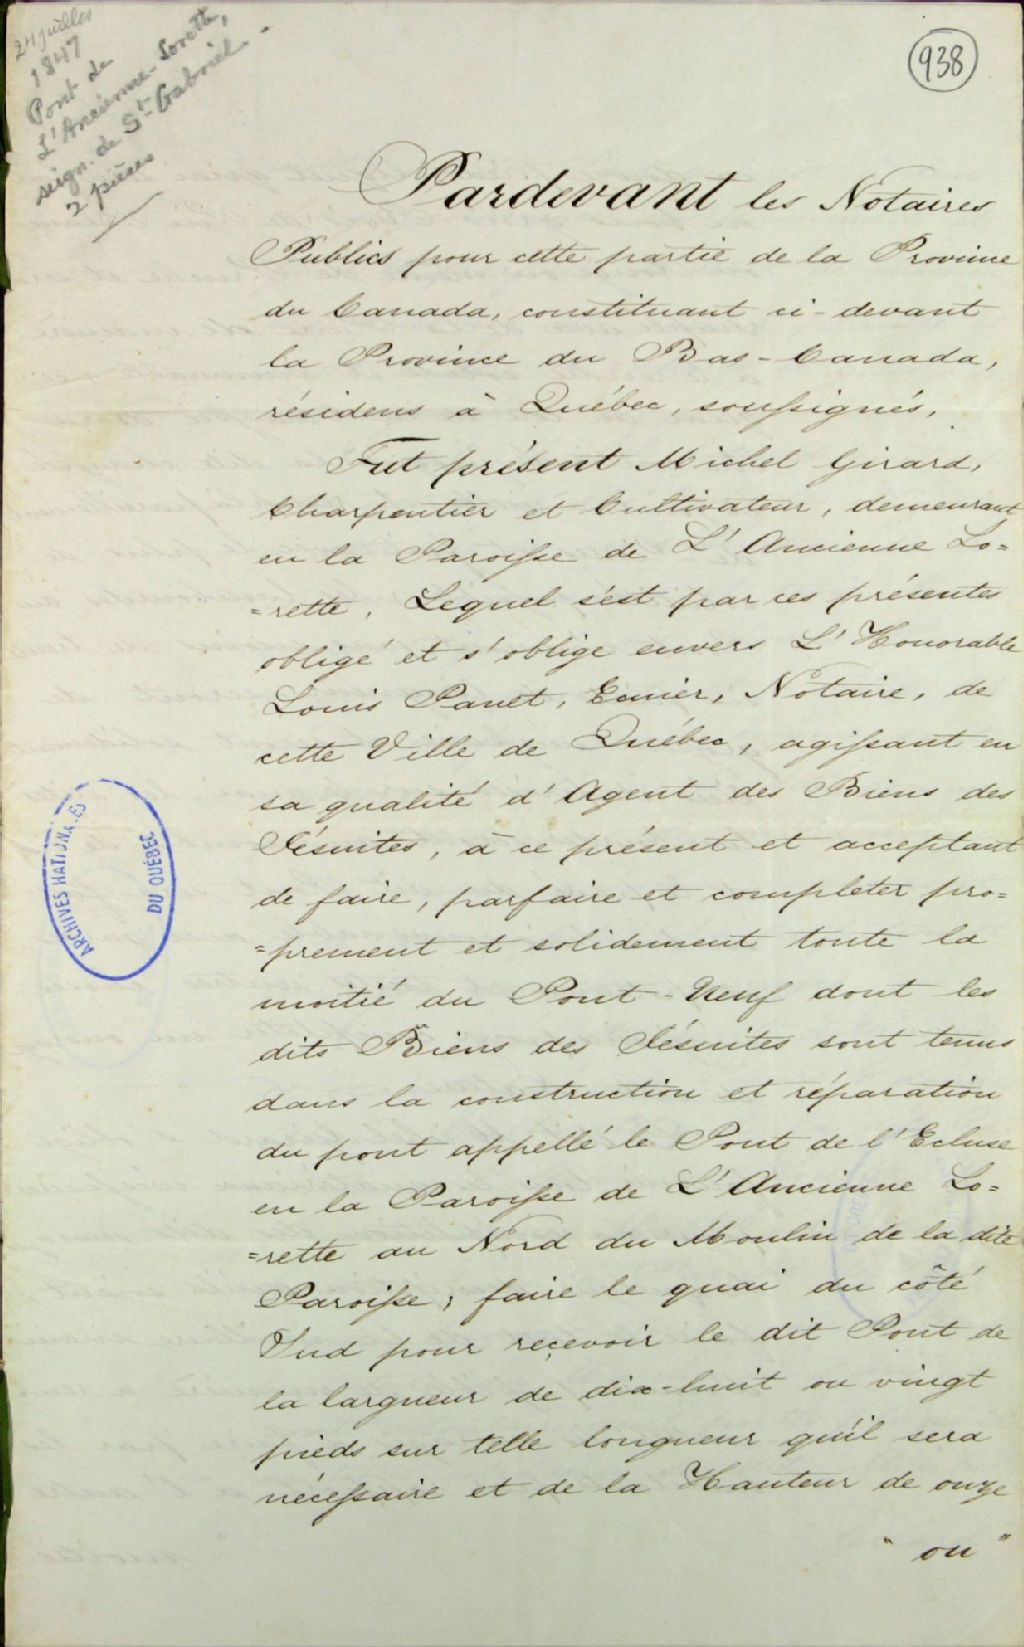 24 juillet
1847
Pont de
L'Ancienne-Lorette,
seign. de St-Gabriel.
2 pièces
938
Pardevant les Notaires
Publics pour cette partie de la Province
du Canada, constituant ci-devant
la Province du Bas-Canada,
résidens à Québec, soussignés,
Fut présent Michel Girard,
Charpentier et Cultivateur, demeurant
en la Paroisse de L'Ancienne Lo=
=rette, Lequel s'est par ces présentes
obligé et s'oblige envers L'Honorable
Louis Panet, Ecuier, Notaire, de
cette Ville de Québec, agissant en
sa qualité d'Agent des Biens des
Jésuites, à ce présent et acceptant
de faire, parfaire et completer pro=
=prement et solidement toute la
moitié du Pont-Neuf dont les
dits Biens des Jésuites sont tenus
dans la construction et réparation
du pont appellé le Pont de l'Ecluse
en la Paroisse de L'Ancienne Lo=
=rette au Nord du Moulin de la dite
Paroisse; faire le quai du côté
Sud pour reçevoir le dit Pont de
la largueur de dix-huit ou vingt
pieds sur telle longueur qu'il sera
nécessaire et de la Hauteur de onze
"ou"
ARCHIVES NATIONALES
DU QUÉBEC